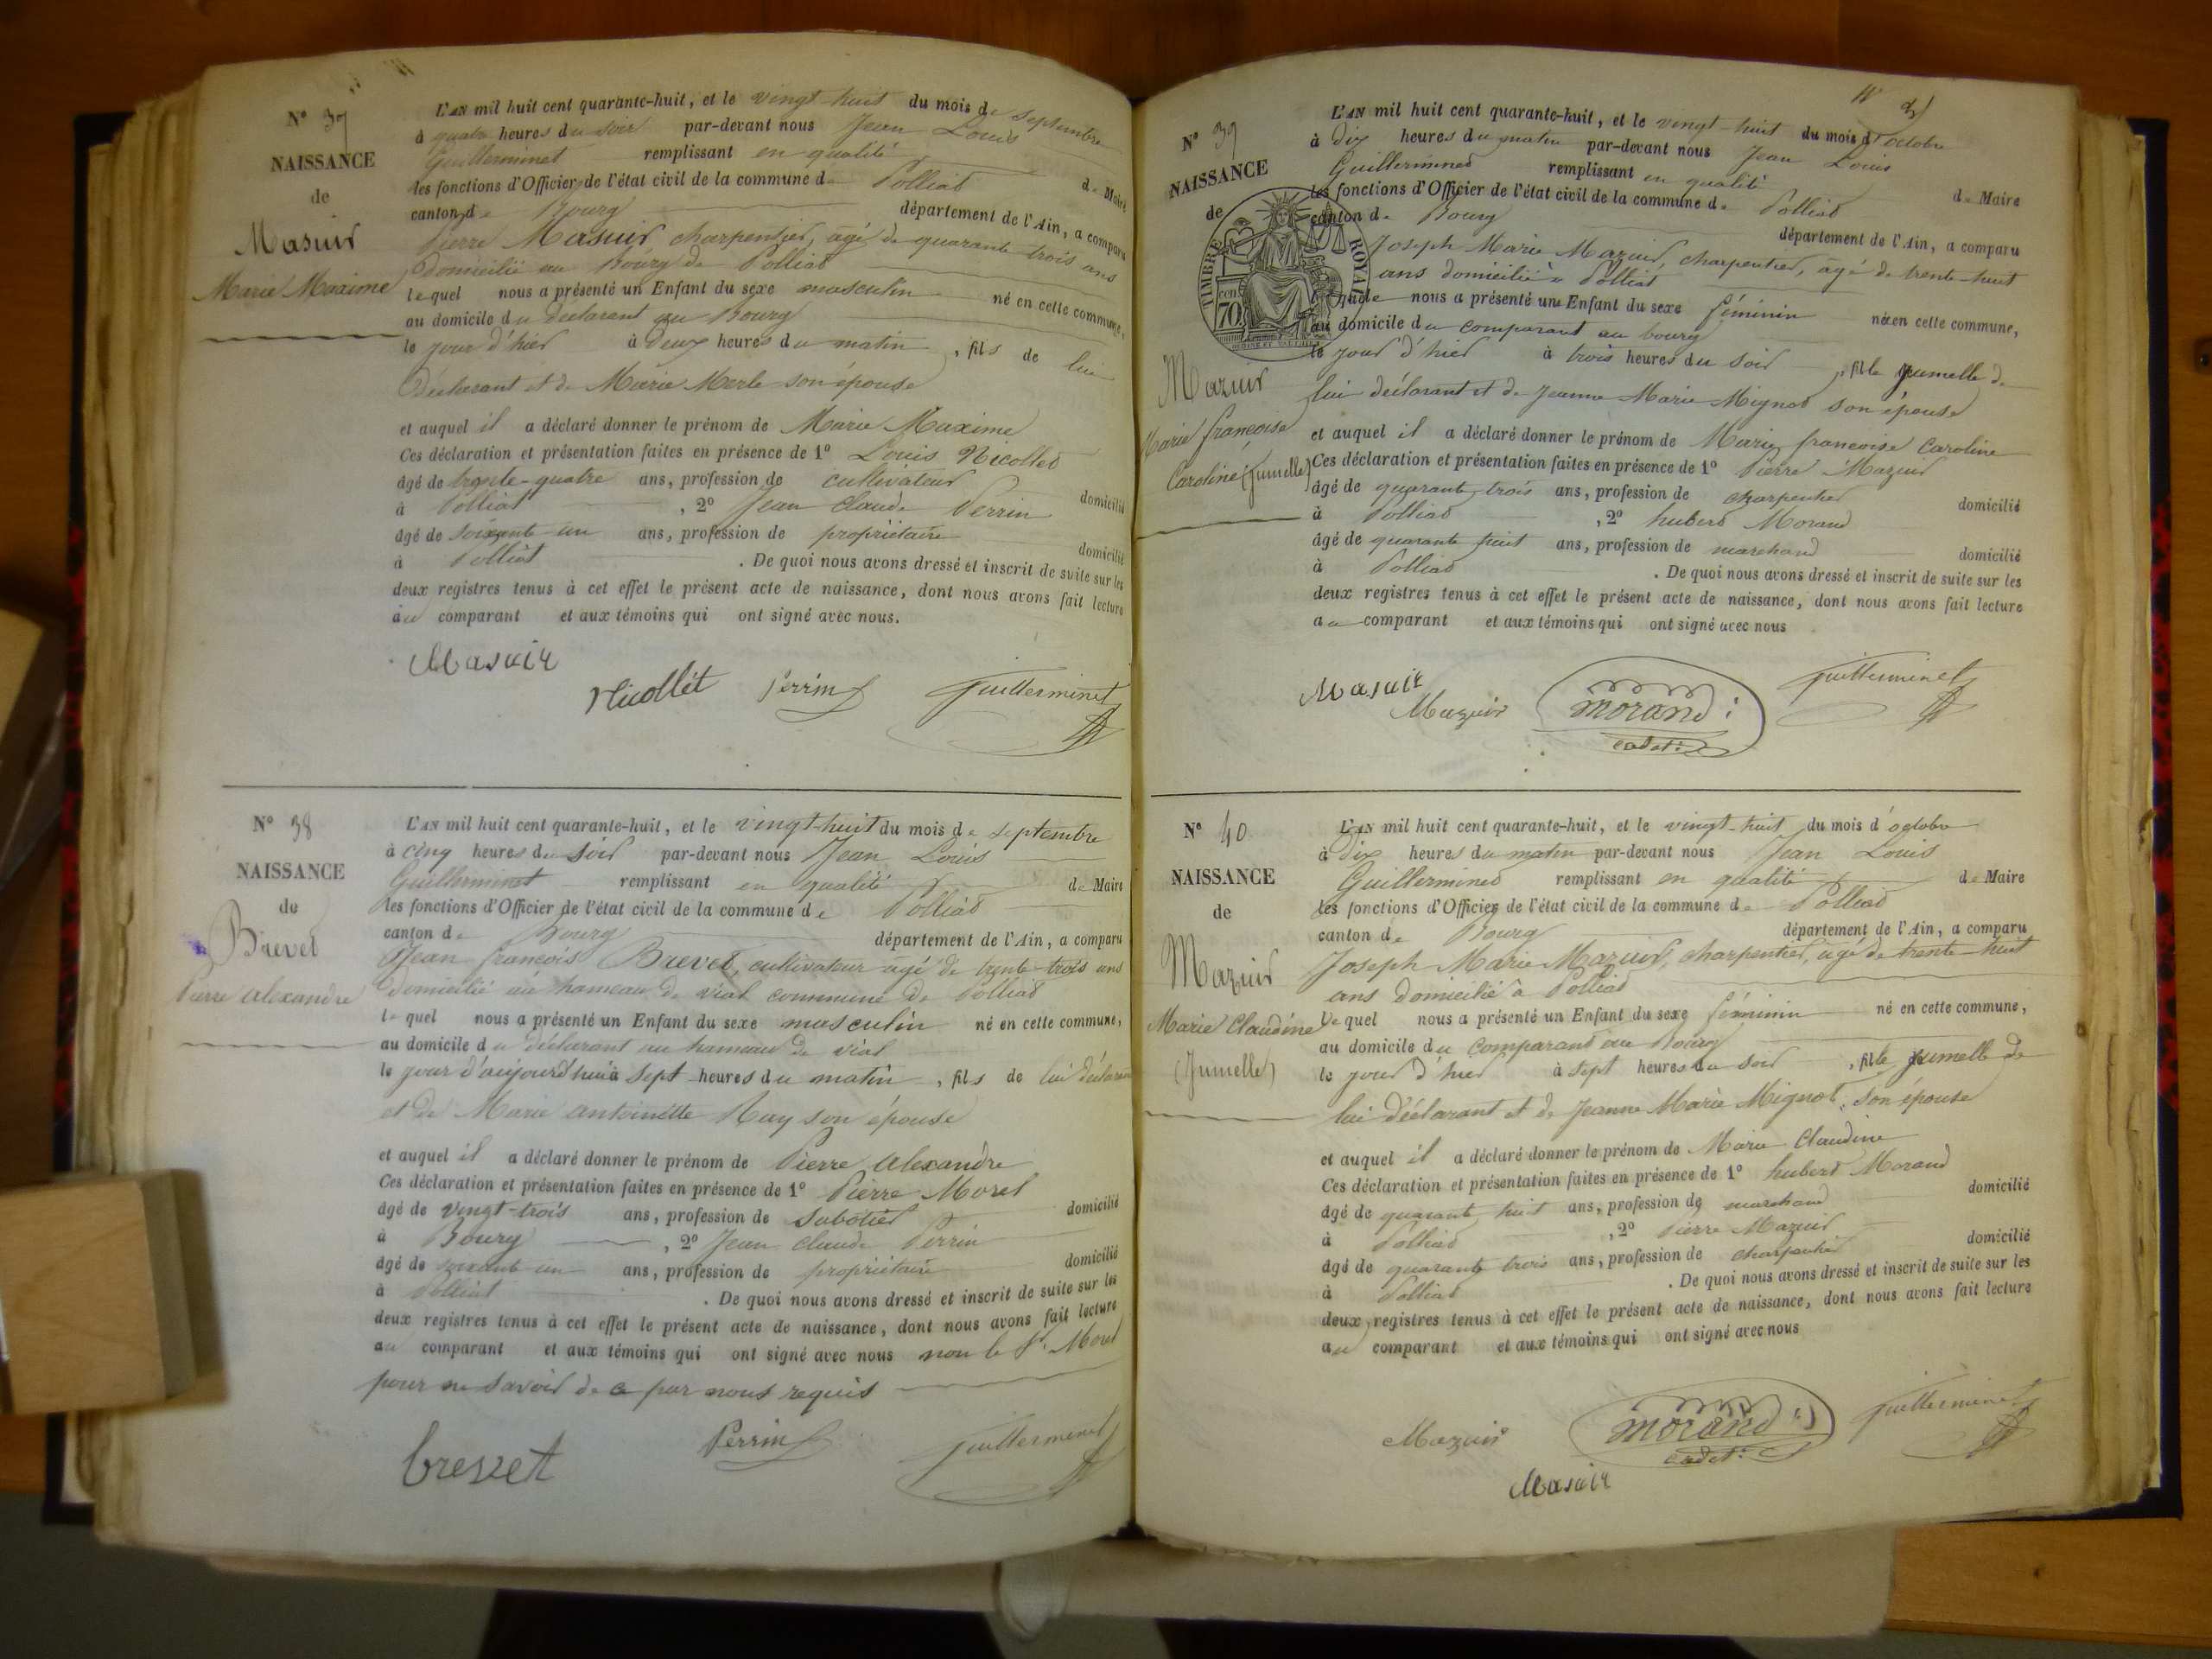 N° 37
NAISSANCE
de
Masuir
Marie Maxime
L'AN mil huit cent quarante-huit, et le vingt-huit du mois de septembre
à quatre heures du soir par-devant nous Jean Louis
Guillerminet remplissant en qualité de Maire
les fonctions d'Officier de l'état civil de la commune de Polliat
canton de Bourg département de l'Ain, a comparu
Pierre Masuir, charpentier, âgé de quarante trois ans
domicilié au Bourg de Polliat
lequel nous a présenté un Enfant du sexe masculin né en cette commune,
au domicile du déclarant au Bourg
le jour d'hier à deux heures du matin, fils de lui
déclarant et de Marie Merle son épouse
et auquel il a déclaré donner le prénom de Marie Maxime
Ces déclaration et présentation faites en présence de 1° Louis Nicollet
âgé de trente-quatre ans, profession de cultivateur domicilié
à Polliat, 2° Jean Claude Perrin
âgé de soixante un ans, profession de propriétaire domicilié
à Polliat. De quoi nous avons dressé et inscrit de suite sur les
deux registres tenus à cet effet le présent acte de naissance, dont nous avons fait lecture
au comparant et aux témoins qui ont signé avec nous.
Masuir
Nicollet Perrin Guillerminet
N° 38
NAISSANCE
de
Brevet
Pierre Alexandre
L'AN mil huit cent quarante-huit, et le vingt-huit du mois de septembre
à cinq heures du soir par-devant nous Jean Louis
Guillerminet remplissant en qualité de Maire
les fonctions d'Officier de l'état civil de la commune de Polliat
canton de Bourg département de l'Ain, a comparu
Jean françois Brevet, cultivateur âgé de trente-trois ans
domicilié au hameau de vial commune de Polliat
lequel nous a présenté un Enfant du sexe masculin né en cette commune,
au domicile du déclarant au hameau de vial
le jour d'aujourd'hui à sept heures du matin, fils de lui déclarant
et de Marie antoinette Ray son épouse
et auquel il a déclaré donner le prénom de Pierre Alexandre
Ces déclaration et présentation faites en présence de 1° Pierre Morel
âgé de vingt-trois ans, profession de sabotier domicilié
à Bourg, 2° Jean Claude Perrin
âgé de soixante-un ans, profession de propriétaire domicilié
à Polliat. De quoi nous avons dressé et inscrit de suite sur les
deux registres tenus à cet effet le présent acte de naissance, dont nous avons fait lecture
au comparant et aux témoins qui ont signé avec nous non le Sr. Morel
pour ne savoir de ce par nous requis
brevet Perrin Guillerminet
N° 39
NAISSANCE
de
TIMBRE ROYAL
70
Mazuir
Marie françoise
Caroline (Jumelle)
L'AN mil huit cent quarante-huit, et le vingt-huit du mois d'octobre
à dix heures du matin par-devant nous Jean Louis
Guillerminet remplissant en qualité de Maire
les fonctions d'Officier de l'état civil de la commune de Polliat
canton de Bourg département de l'Ain, a comparu
Joseph Marie Mazuir, charpentier, âgé de trente-huit
ans domicilié à Polliat
lequel nous a présenté un Enfant du sexe féminin née en cette commune,
au domicile du comparant au bourg
le jour d'hier à trois heures du soir, fille jumelle de
lui déclarant et de Jeanne Marie Mignot son épouse
et auquel il a déclaré donner le prénom de Marie francoise Caroline
Ces déclaration et présentation faites en présence de 1° Pierre Mazuir
âgé de quarante trois ans, profession de charpentier domicilié
à Polliat, 2° hubert Morand
âgé de quarante huit ans, profession de marchand domicilié
à Polliat. De quoi nous avons dressé et inscrit de suite sur les
deux registres tenus à cet effet le présent acte de naissance, dont nous avons fait lecture
au comparant et aux témoins qui ont signé avec nous
Masuir Mazuir morand cadet Guillerminet
N° 40
NAISSANCE
de
Mazuir
Marie Claudine
(Jumelle)
L'AN mil huit cent quarante-huit, et le vingt-huit du mois d'octobre
à dix heures du matin par-devant nous Jean Louis
Guillerminet remplissant en qualité de Maire
les fonctions d'Officier de l'état civil de la commune de Polliat
canton de Bourg département de l'Ain, a comparu
Joseph Marie Mazuir, charpentier, âgé de trente-huit
ans domicilié à Polliat
lequel nous a présenté un Enfant du sexe féminin né en cette commune,
au domicile du comparant au Bourg
le jour d'hier à sept heures du soir, fille jumelle de
lui déclarant et de Jeanne Marie Mignot, son épouse
et auquel il a déclaré donner le prénom de Marie Claudine
Ces déclaration et présentation faites en présence de 1° hubert Morand
âgé de quarante huit ans, profession de marchand domicilié
à Polliat, 2° Pierre Mazuir
âgé de quarante trois ans, profession de charpentier domicilié
à Polliat. De quoi nous avons dressé et inscrit de suite sur les
deux registres tenus à cet effet le présent acte de naissance, dont nous avons fait lecture
au comparant et aux témoins qui ont signé avec nous
Mazuir morand cadet Guillerminet
Masuir